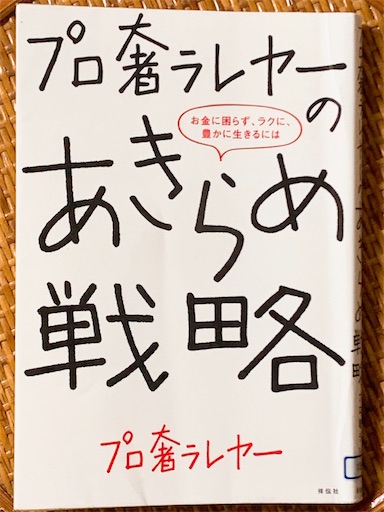 プロ奢ラレヤーの
お金に困らず、ラクに、
豊かに生きるには
あきらめ
戦略
プロ奢ラレヤー
祥伝社